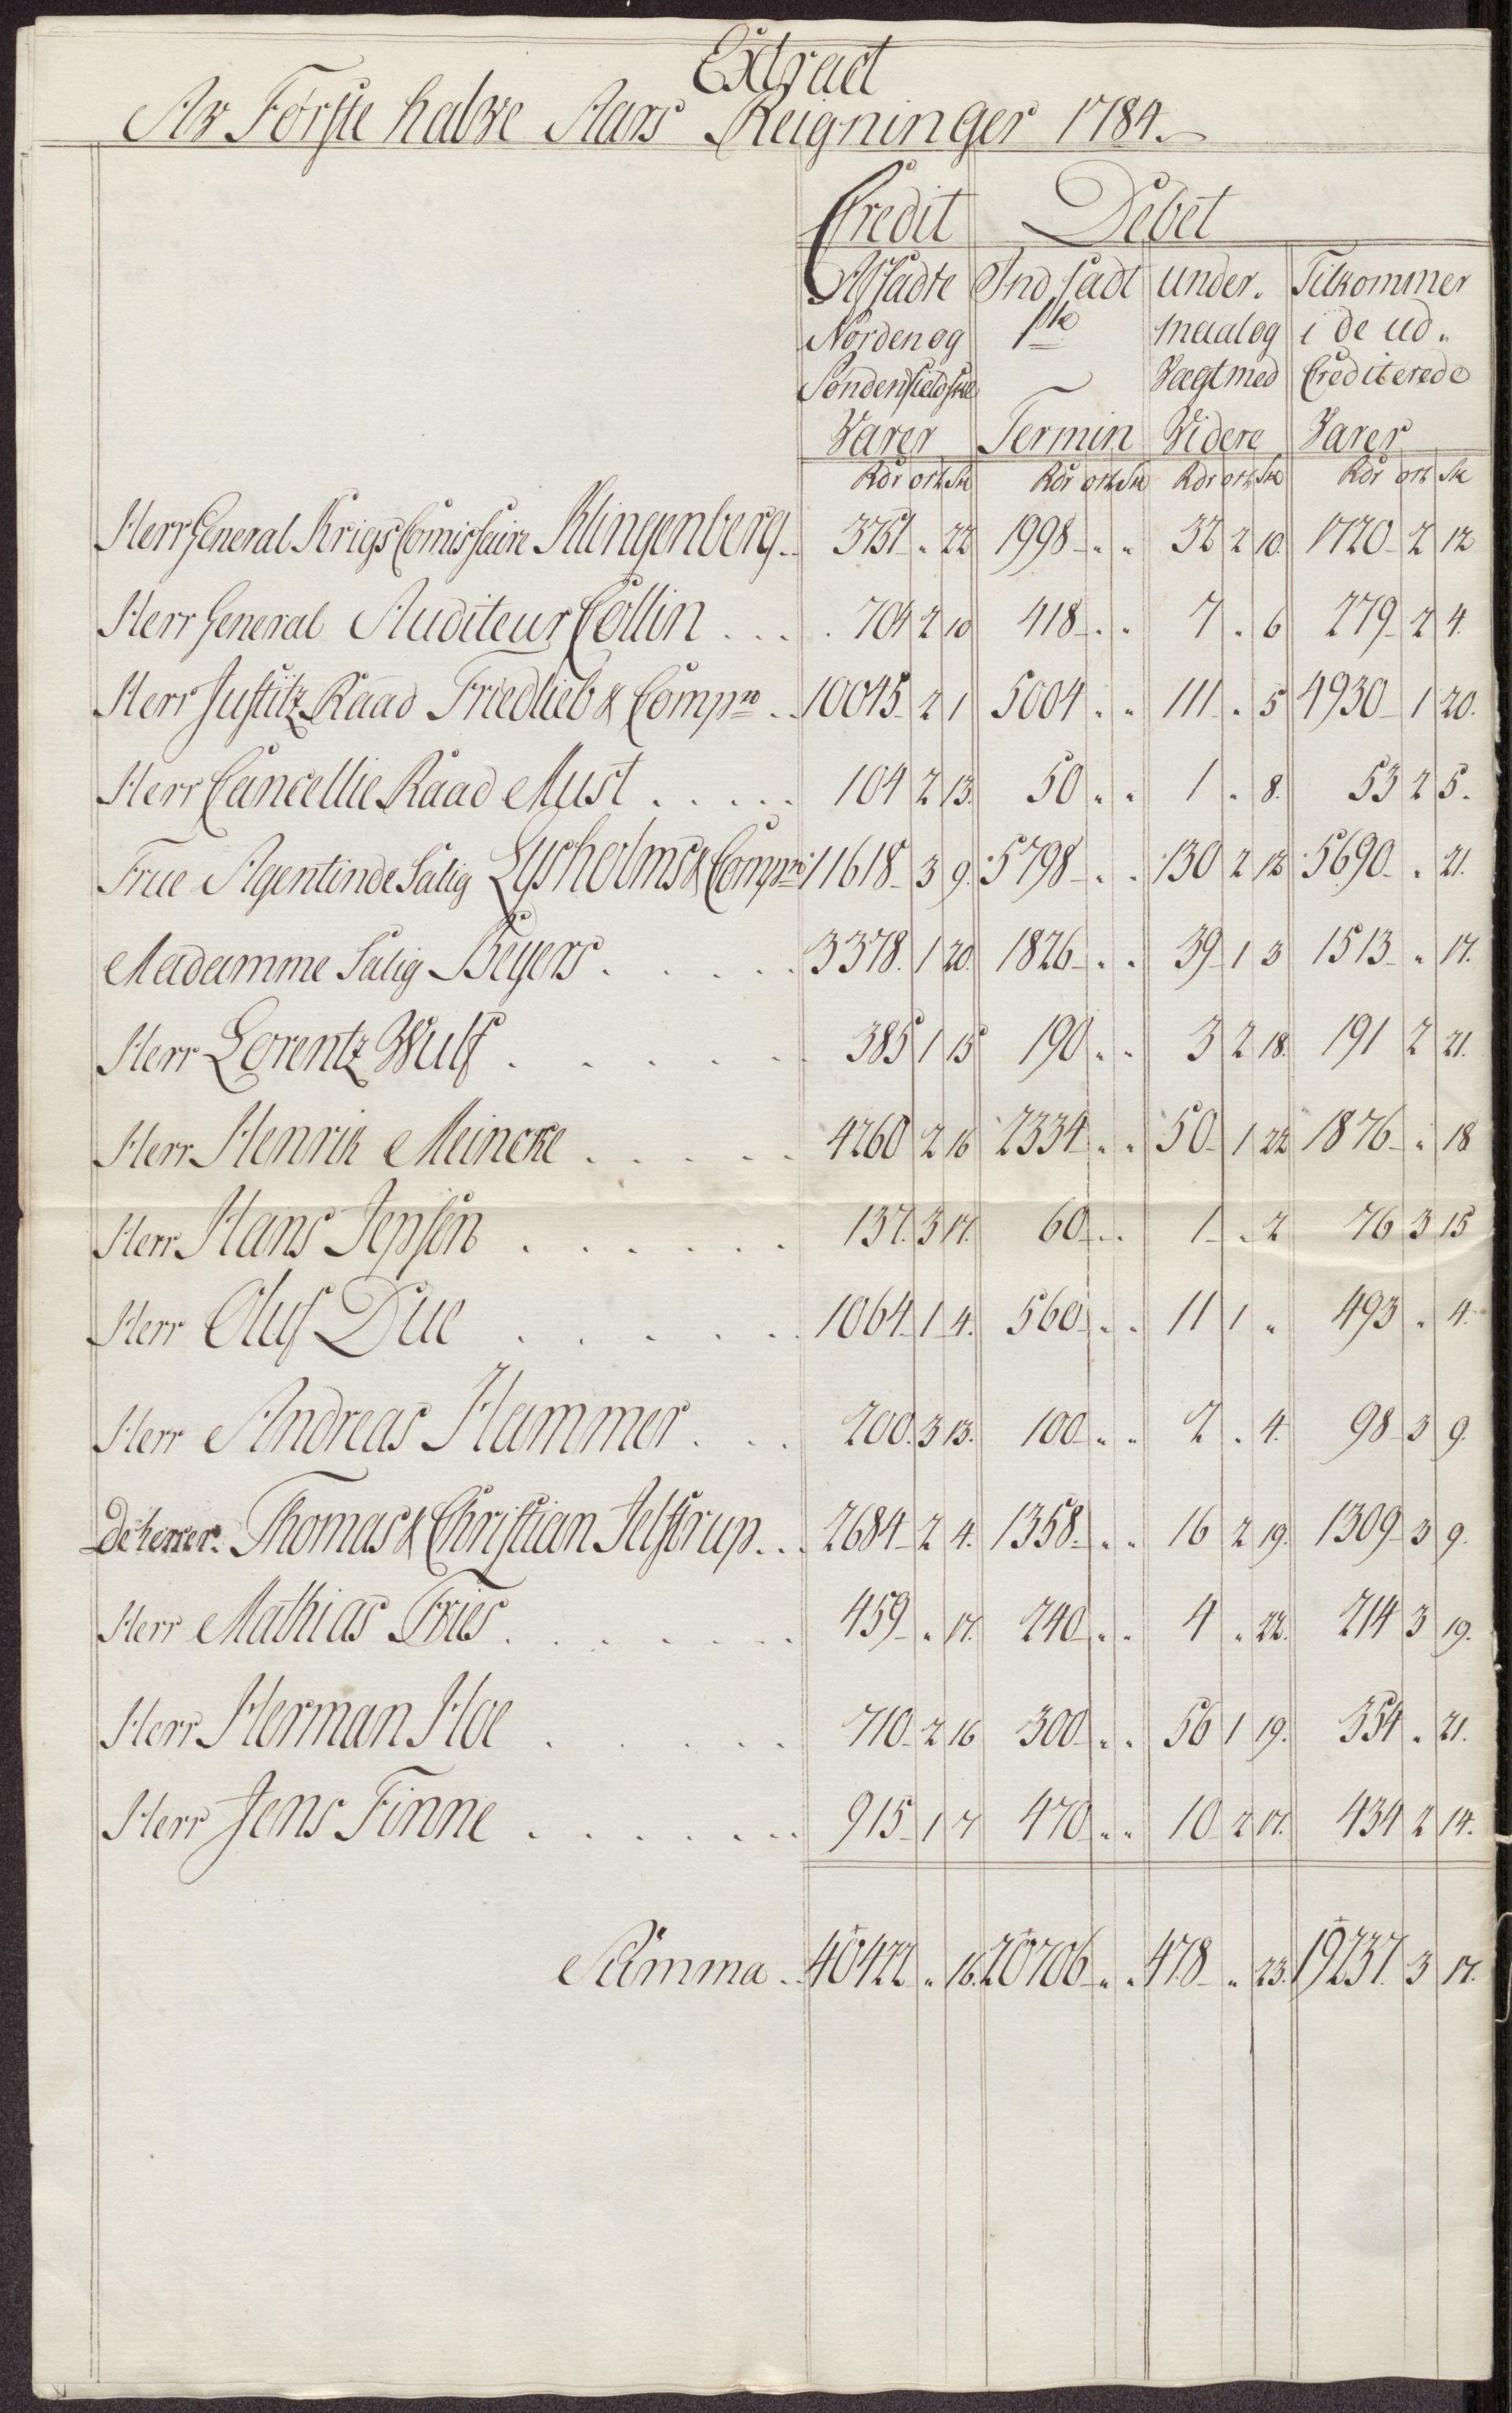 Extract
Av Første halve Aars Reigninger 1784.
Credit Debet
Afsadte Ind sadt Under. Tilkommer
Norden og 1ste maal og i de ud.
Søndenfieldske Vægt med Crediterede
Varer Termin Videre Varer
Rdr ort Sk Rdr ort Sk Rdr ort Sk Rdr ort Sk
Herr General Krigs Comissaire Klingenberg.. 3751 " 22 1998 " " 32 2 10. 1720 2 12
Herr General Auditeur Collin .... 704 2 10 418 " " 7 " 6 279 2 4.
Herr Justitz Raad Friedlieb & Compn .. 10045 2 1 5004 " " 111 " 5 4930 1 20.
Herr Cancellie Raad Must ..... 104 2 13. 50 " " 1 " 8. 53 2 5.
Frue Agentinde Salig Lysholms & Compn 11618 3 9. 5798 " " 130 2 12 5690 " 21.
Madamme Salig Beyers ..... 3378. 1 20. 1826 " " 39 1 3 1513 " 17.
Herr Lorentz Wulf ...... 385 1 15 190 " " 3 2 18. 191 2 21.
Herr Henrik Meincke ..... 4260 2 16 2334 " " 50 1 22 1876 " 18
Herr Hans Jepsen ...... 137. 3 17. 60 " " 1 " 2 76 3 15
Herr Oluf Due ...... 1064 1 4. 560 " " 11 1 " 493 " 4.
Herr Andreas Hammer ... 200. 3 13. 100 " " 2 " 4. 98 3 9.
De herrer. Thomas & Christian Jelstrup... 2684 2 4. 1358. " " 16 2 19. 1309 3 9.
Herr Mathias Fries ....... 459 " 17. 240 " " 4 " 22. 214 3 19.
Herr Herman Hoe ..... 710 2 16 300 " " 56 1 19. 354 " 21.
Herr Jens Finne ....... 915 1 7 470 " " 10 2 17. 434 2 14.
Summa .. 40422 " 16. 20706 " " 478 " 23. 19237. 3 17.